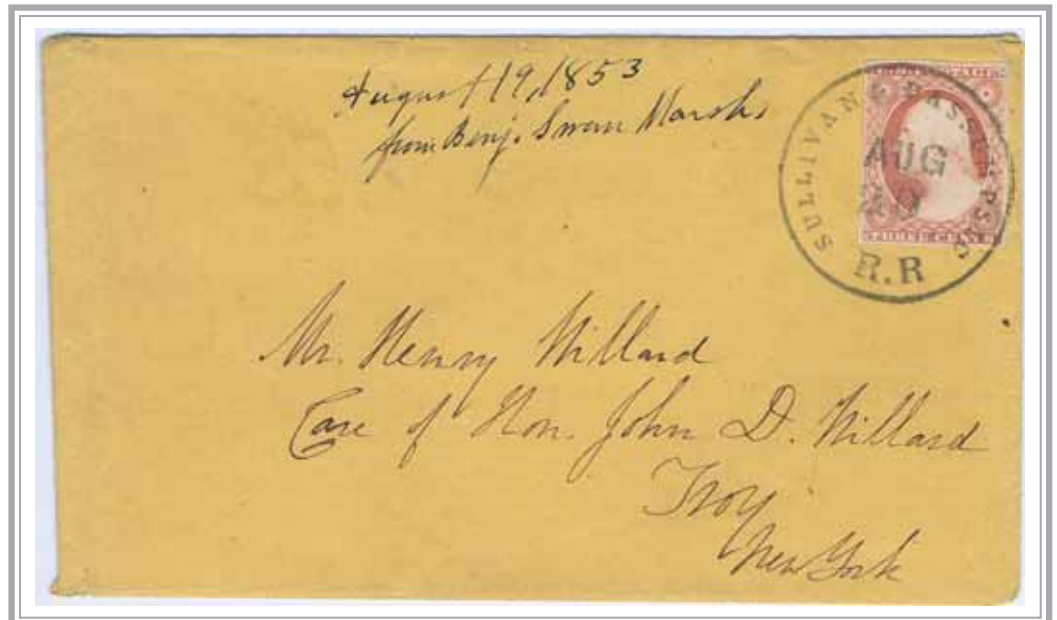 August 19, 1853
from Benj. Swan Marsh
SULLIVAN & PASSUMPSIC
AUG
R.R
THREE CENTS
Mr. Henry Willard
Care of Hon. John D. Willard
Troy
New York